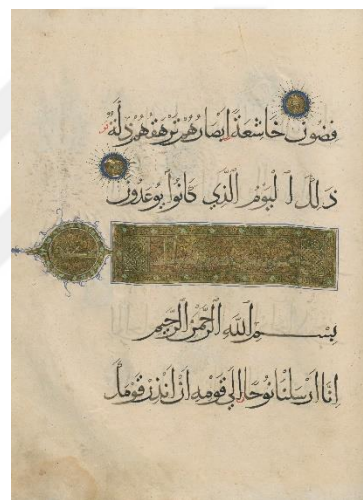 فضون خاشعة ابصارهم ترهقهم ذلة
ذلك اليوم الذي كانوا يوعدون
بسم الله الرحمن الرحيم
انا ارسلنا نوحا الى قومه ان انذر قومك